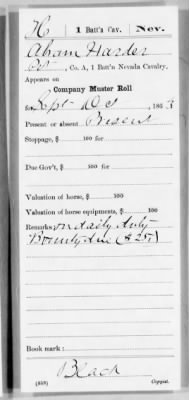 H | 1 Batt'n Cav. | Nev.
Abram Harder
Pvt., Co. A, 1 Batt'n Nevada Cavalry.
Appears on
Company Muster Roll
for Sept. Oct, 1863
Present or absent Present
Stoppage, $ 100 for
Due Gov't, $ 100 for
Valuation of horse, $ 100
Valuation of horse equipments, $ 100
Remarks: on daily duty
Bounty due ($25)
Book mark:
Black
(859) Copyist.